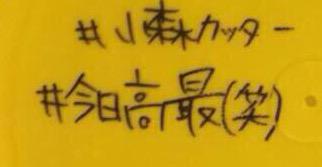 #小森カッター
#今日高最(笑)